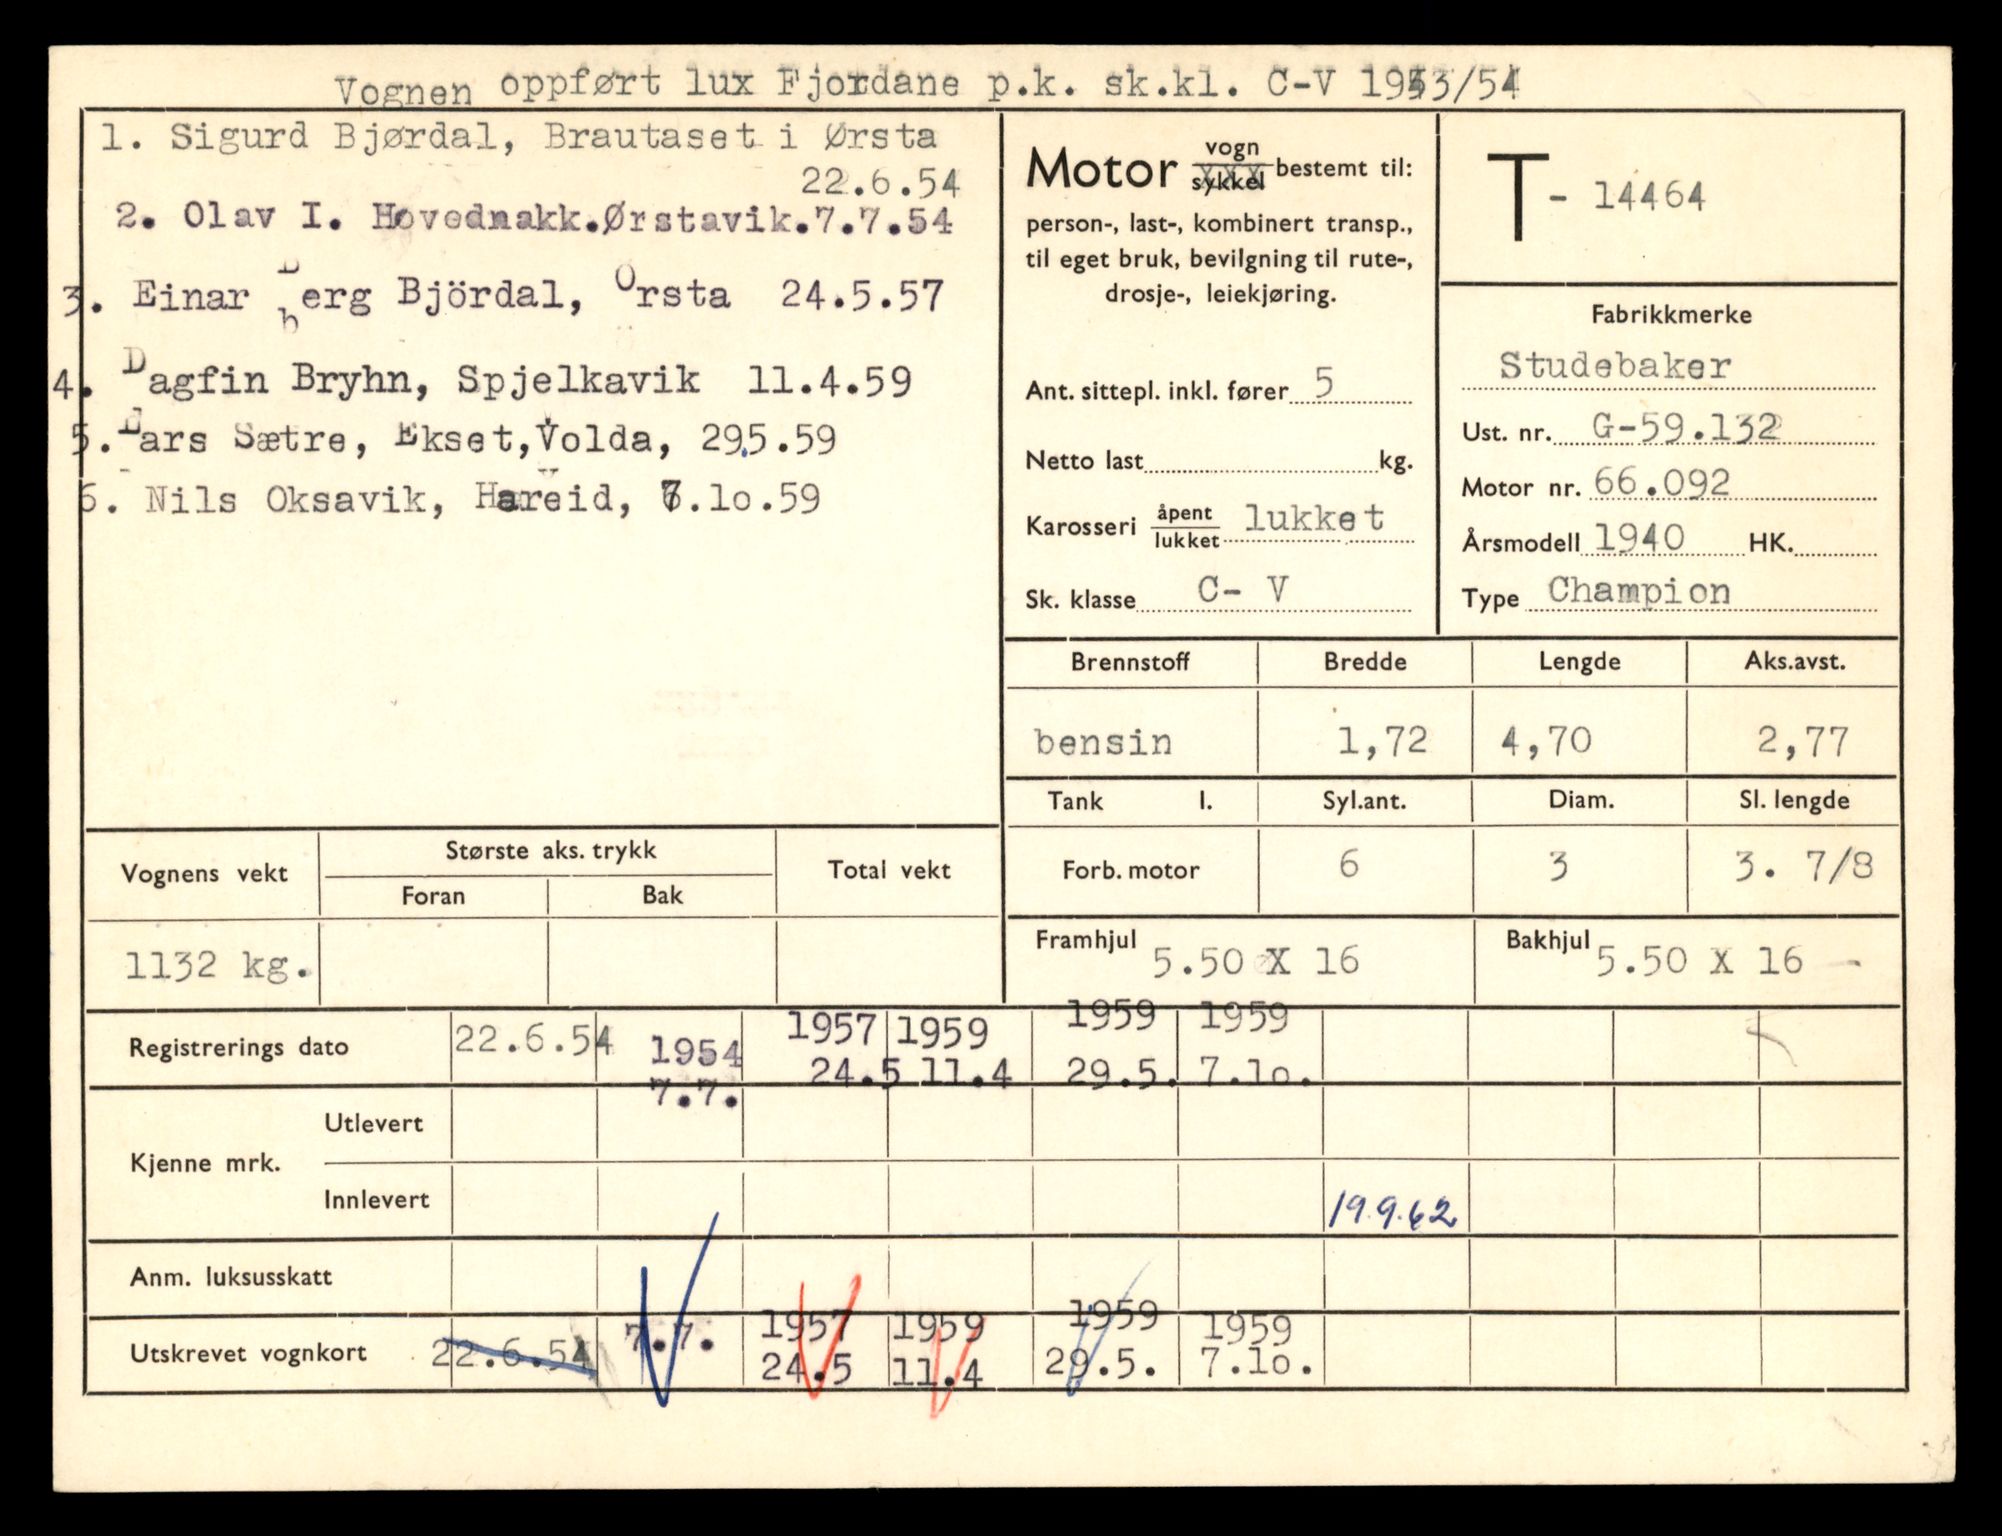 Vognen oppført lux Fjordane p.k. sk.kl. C-V 1953/54
1. Sigurd Bjørdal, Brautaset i Ørsta
22.6.54
2. Olav I. Hovednakk.Ørstavik.7.7.54
3. Einar Berg Björdal, Orsta 24.5.57
4. Dagfin Bryhn, Spjelkavik 11.4.59
5. Lars Sætre, Ekset, Volda, 29.5.59
6. Nils Oksavik, Hareid, 7.10.59
Motor vogn sykkel bestemt til:
person-, last-, kombinert transp.,
til eget bruk, bevilgning til rute-,
drosje-, leiekjøring.
Ant. sittepl. inkl. fører 5
Netto last kg.
Karosseri åpent lukket lukket
Sk. klasse C- V
T - 14464
Fabrikkmerke
Studebaker
Ust. nr. G-59.132
Motor nr. 66.092
Årsmodell 1940 HK.
Type Champion
Brennstoff Bredde Lengde Aks.avst.
bensin 1,72 4,70 2,77
Tank l. Syl.ant. Diam. Sl. lengde
Forb. motor 6 3 3. 7/8
Framhjul 5.50 X 16 Bakhjul 5.50 X 16
Vognens vekt Største aks. trykk Total vekt
Foran Bak
1132 kg.
Registrerings dato 22.6.54 1954 7.7. 1957 24.5 1959 11.4 1959 29.5. 1959 7.10.
Kjenne mrk. Utlevert
Innlevert 19.9.62
Anm. luksusskatt
Utskrevet vognkort 22.6.54 7.7. 1957 24.5 1959 11.4 1959 29.5. 1959 7.10.